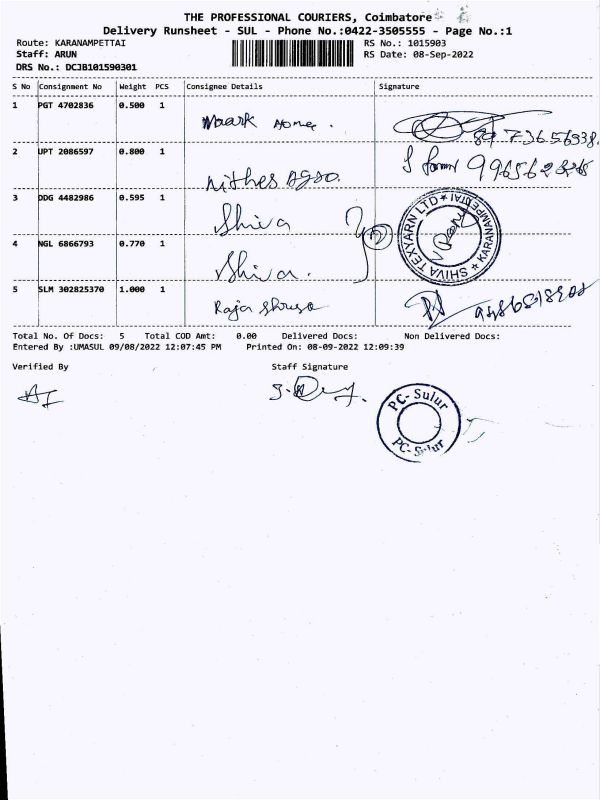 THE PROFESSIONAL COURIERS, Coimbatore
Delivery Runsheet - SUL - Phone No.:0422-3505555 - Page No.:1
Route: KARANAMPETTAI
RS No.: 1015903
Staff: ARUN
RS Date: 08-Sep-2022
DRS No.: DCJB101590301
S No Consignment No Weight PCS Consignee Details Signature
1 PGT 4702836 0.500 1 Maark Home.
2 UPT 2086597 0.800 1 Nithes Agso.
3 DDG 4482986 0.595 1 Shiva
SHIVA TEXYARN LTD * KARANAMPETTAI *
4 NGL 6866793 0.770 1 Shiva.
5 SLM 302825370 1.000 1 Raja
Total No. Of Docs: 5 Total COD Amt: 0.00 Delivered Docs: Non Delivered Docs:
Entered By :UMASUL 09/08/2022 12:07:45 PM Printed On: 08-09-2022 12:09:39
Verified By Staff Signature
PC- Sulur
PC- Sulur